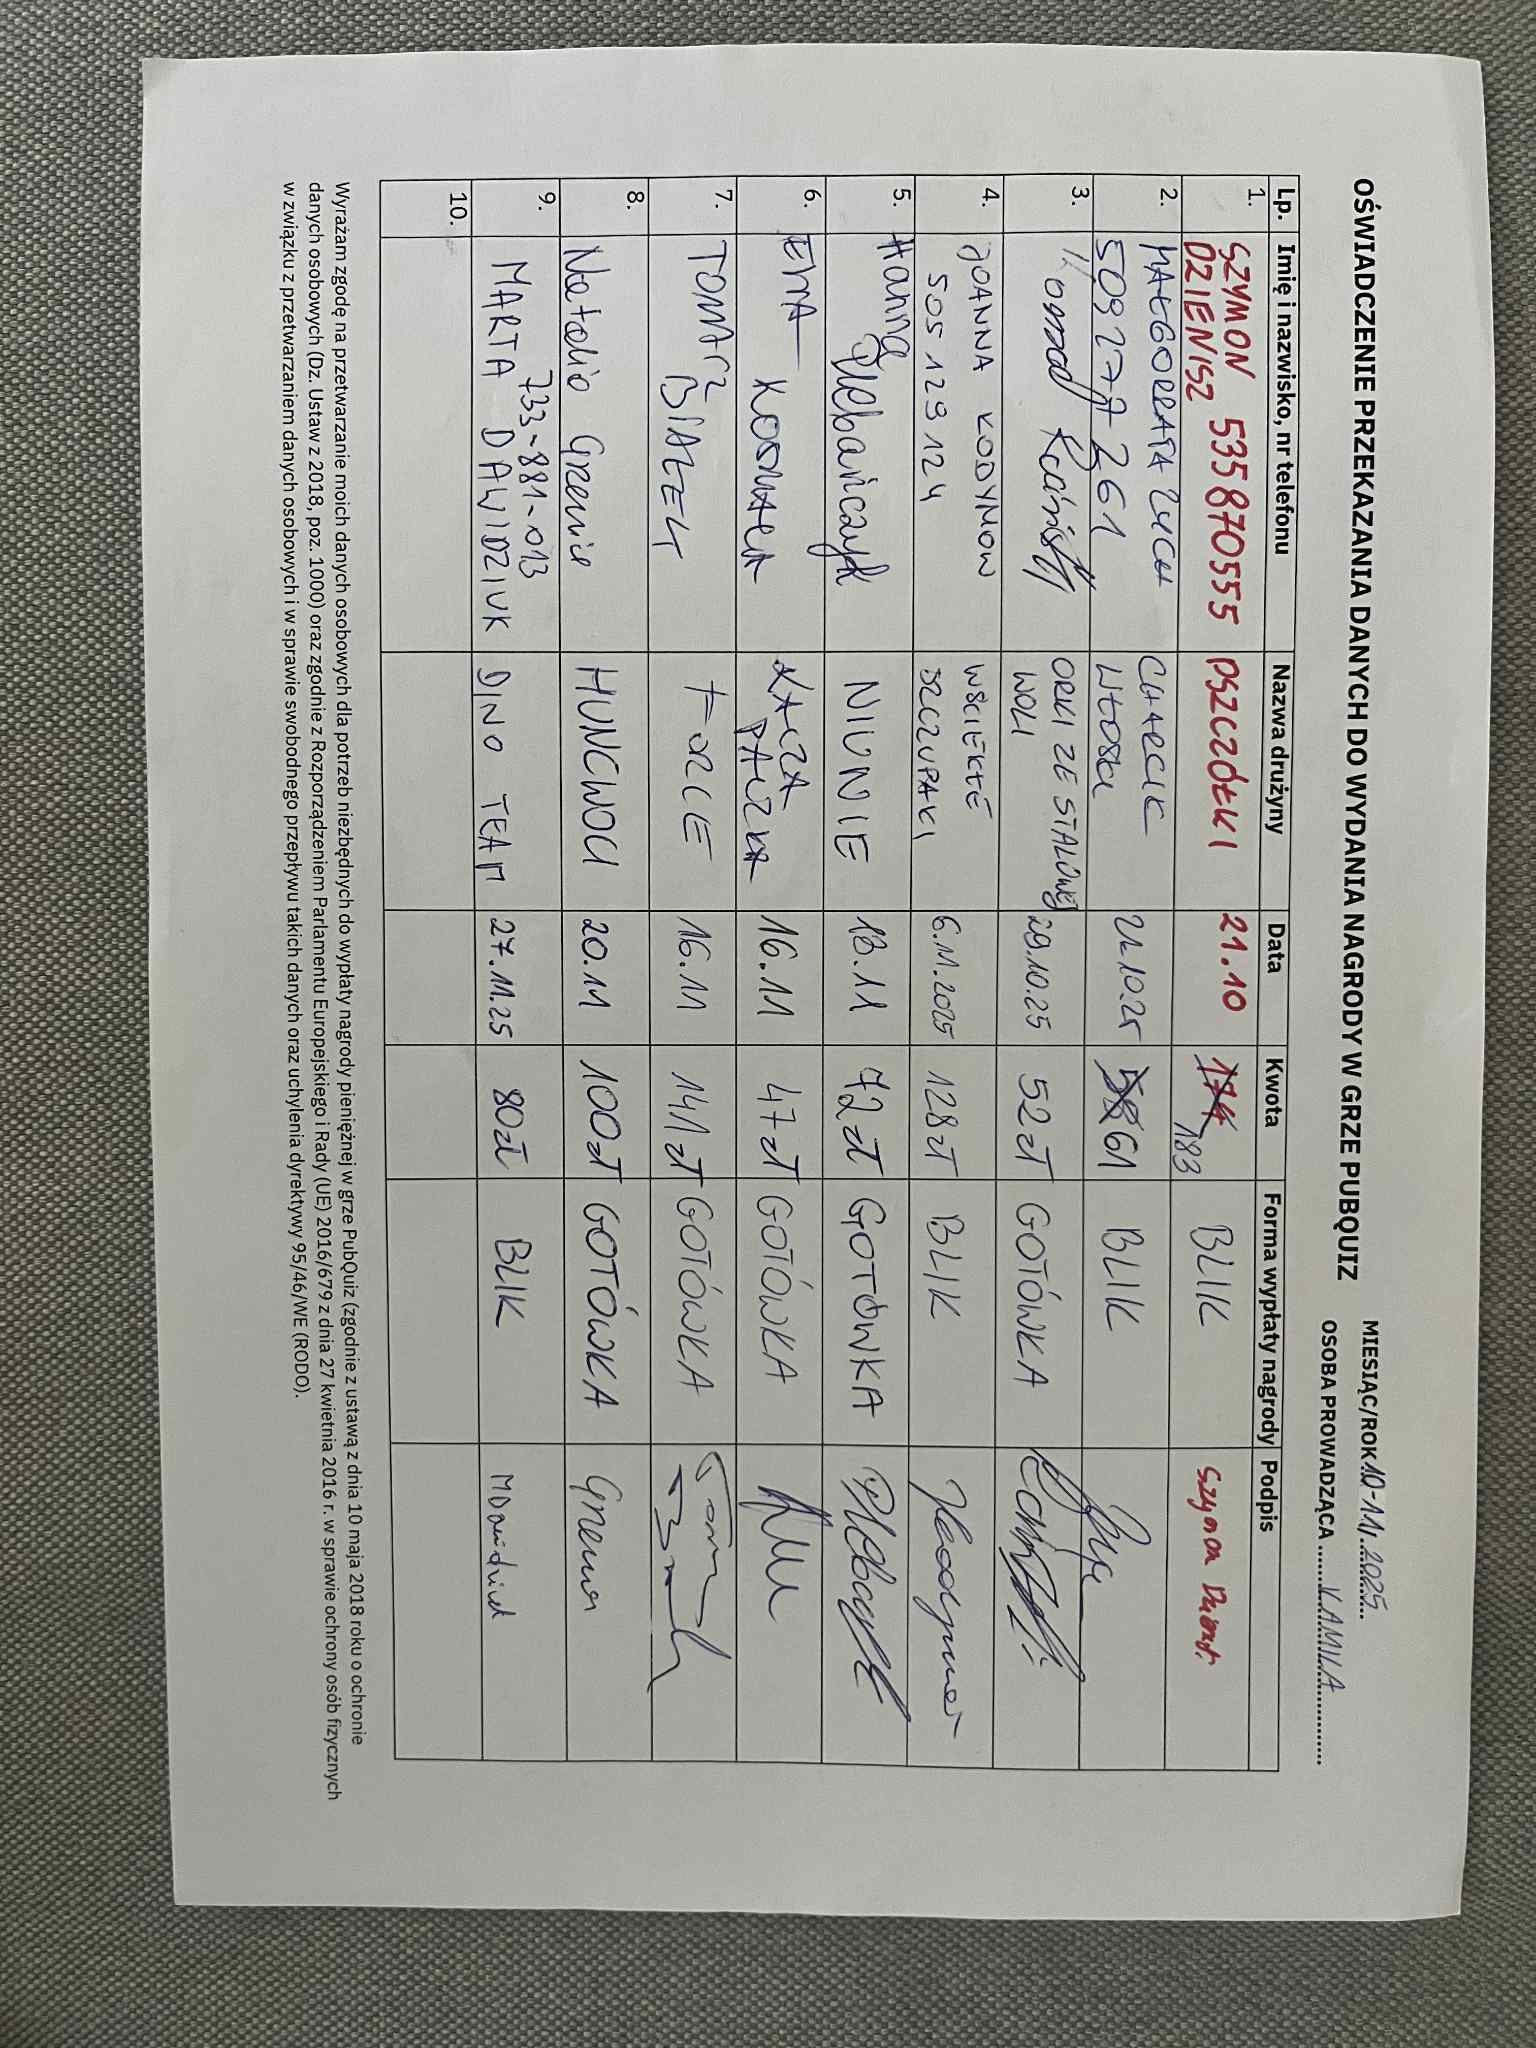 OŚWIADCZENIE PRZEKAZANIA DANYCH DO WYDANIA NAGRODY W GRZE PUBQUIZ
MIESIĄC/ROK 10-11.2025
OSOBA PROWADZĄCA KAMILA
Lp. Imię i nazwisko, nr telefonu Nazwa drużyny Data Kwota Forma wypłaty nagrody Podpis
1. SZYMON 535870555 PSZCZÓŁKI 21.10 174 183 BLIK Szymon
DZIENISZ
2. MAŁGORZATA ZUCH CHARCIK 21.10.25 58 61 BLIK
509277261 WŁOSKI
3. Konrad ORKI ZE STALOWEJ 29.10.25 52 zł GOTÓWKA
WOLI
4. JOANNA KODYMOW WŚCIEKŁE 6.11.2025 128 zł BLIK
505 129 124 SZCZUPAKI
5. Hanna Plebańczyk NIUNIE 13.11 72 zł GOTÓWKA
6. EWA KOSMALA KACZA 16.11 47 zł GOTÓWKA
PACZKA
7. TOMASZ FORCE 16.11 141 zł GOTÓWKA
BIAŁEK
8. Natalia HUNCWOCI 20.11 100 zł GOTÓWKA
9. 733-881-013 DINO TEAM 27.11.25 80 zł BLIK MDawidziuk
MARTA DAWIDZIUK
10.
Wyrażam zgodę na przetwarzanie moich danych osobowych dla potrzeb niezbędnych do wypłaty nagrody pieniężnej w grze PubQuiz (zgodnie z ustawą z dnia 10 maja 2018 roku o ochronie
danych osobowych (Dz. Ustaw z 2018, poz. 1000) oraz zgodnie z Rozporządzeniem Parlamentu Europejskiego i Rady (UE) 2016/679 z dnia 27 kwietnia 2016 r. w sprawie ochrony osób fizycznych
w związku z przetwarzaniem danych osobowych i w sprawie swobodnego przepływu takich danych oraz uchylenia dyrektywy 95/46/WE (RODO).